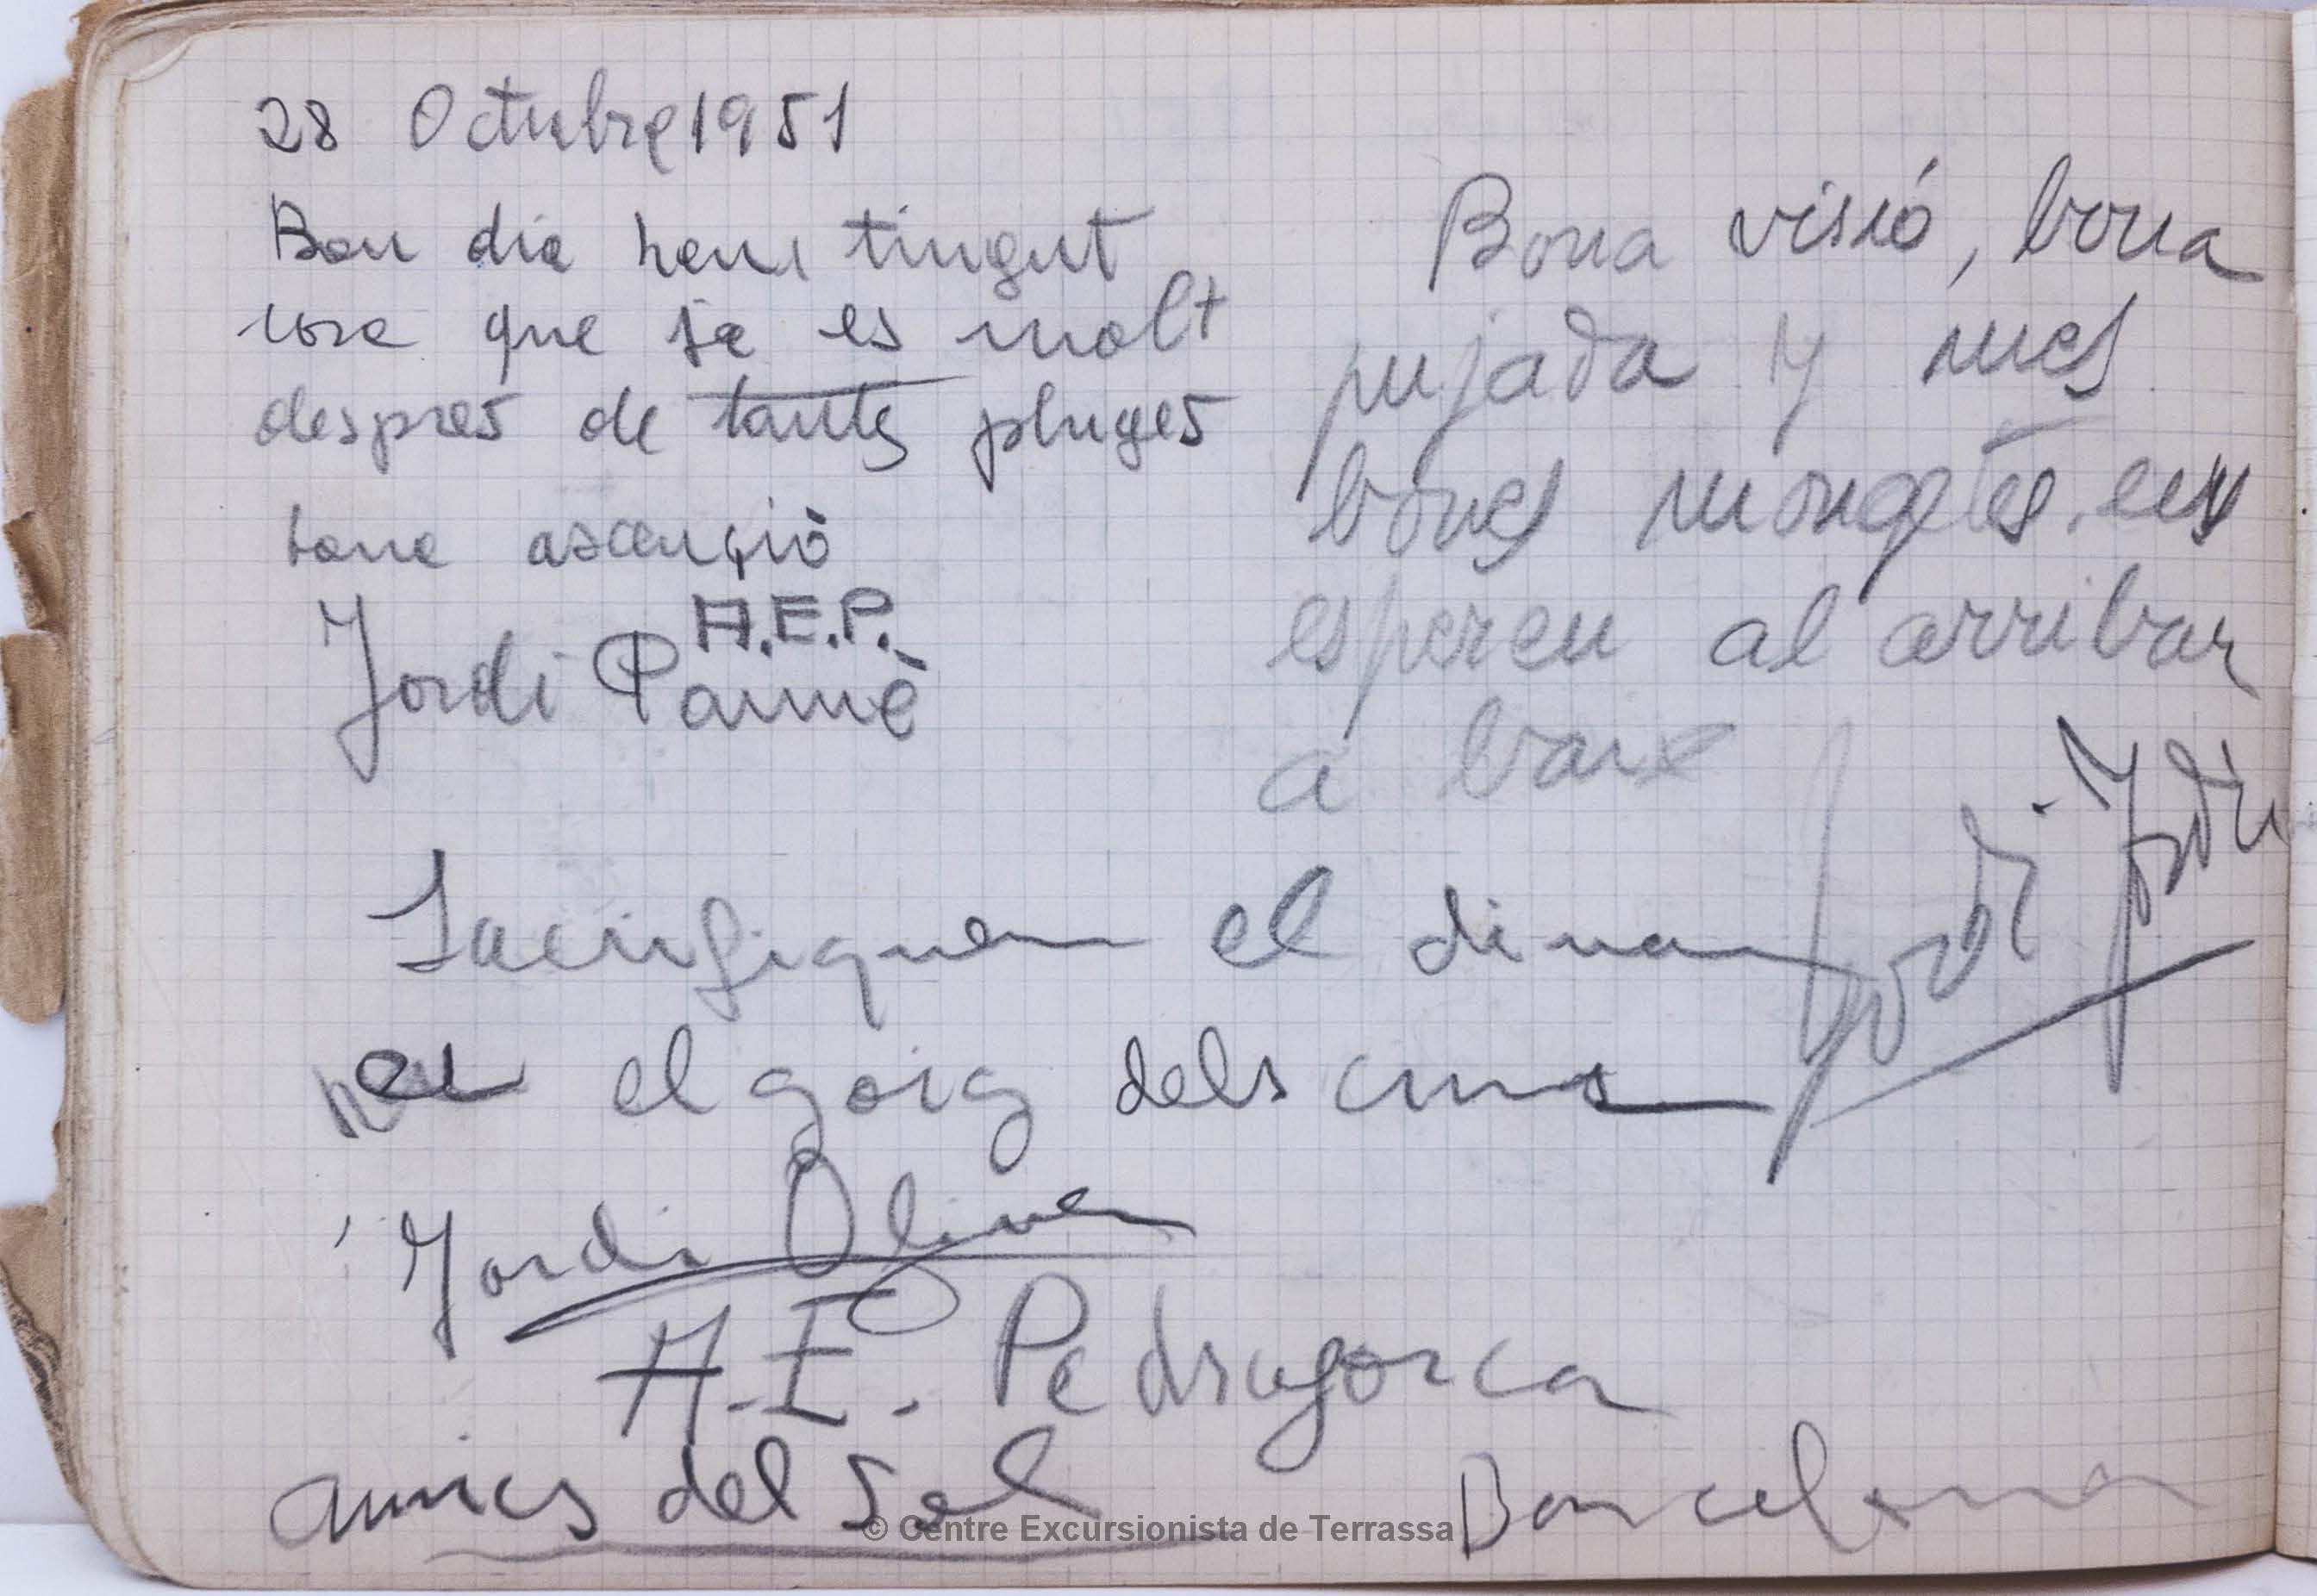 28 Octubre 1951
Bon dia hem tingut
cosa que ja es molt
despres de tantes pluges
bona ascenció
A.E.P.
Jordi Pannè
Bona visió, bona
pujada y mes
bones mongetes ens
espereu al arribar
a baix
Jordi Jordi
Sacrifiquem el dinar
per el goig dels cims
Jordi Oliver
A.E. Pedragosca
amics del Sol
Barcelona
© Centre Excursionista de Terrassa